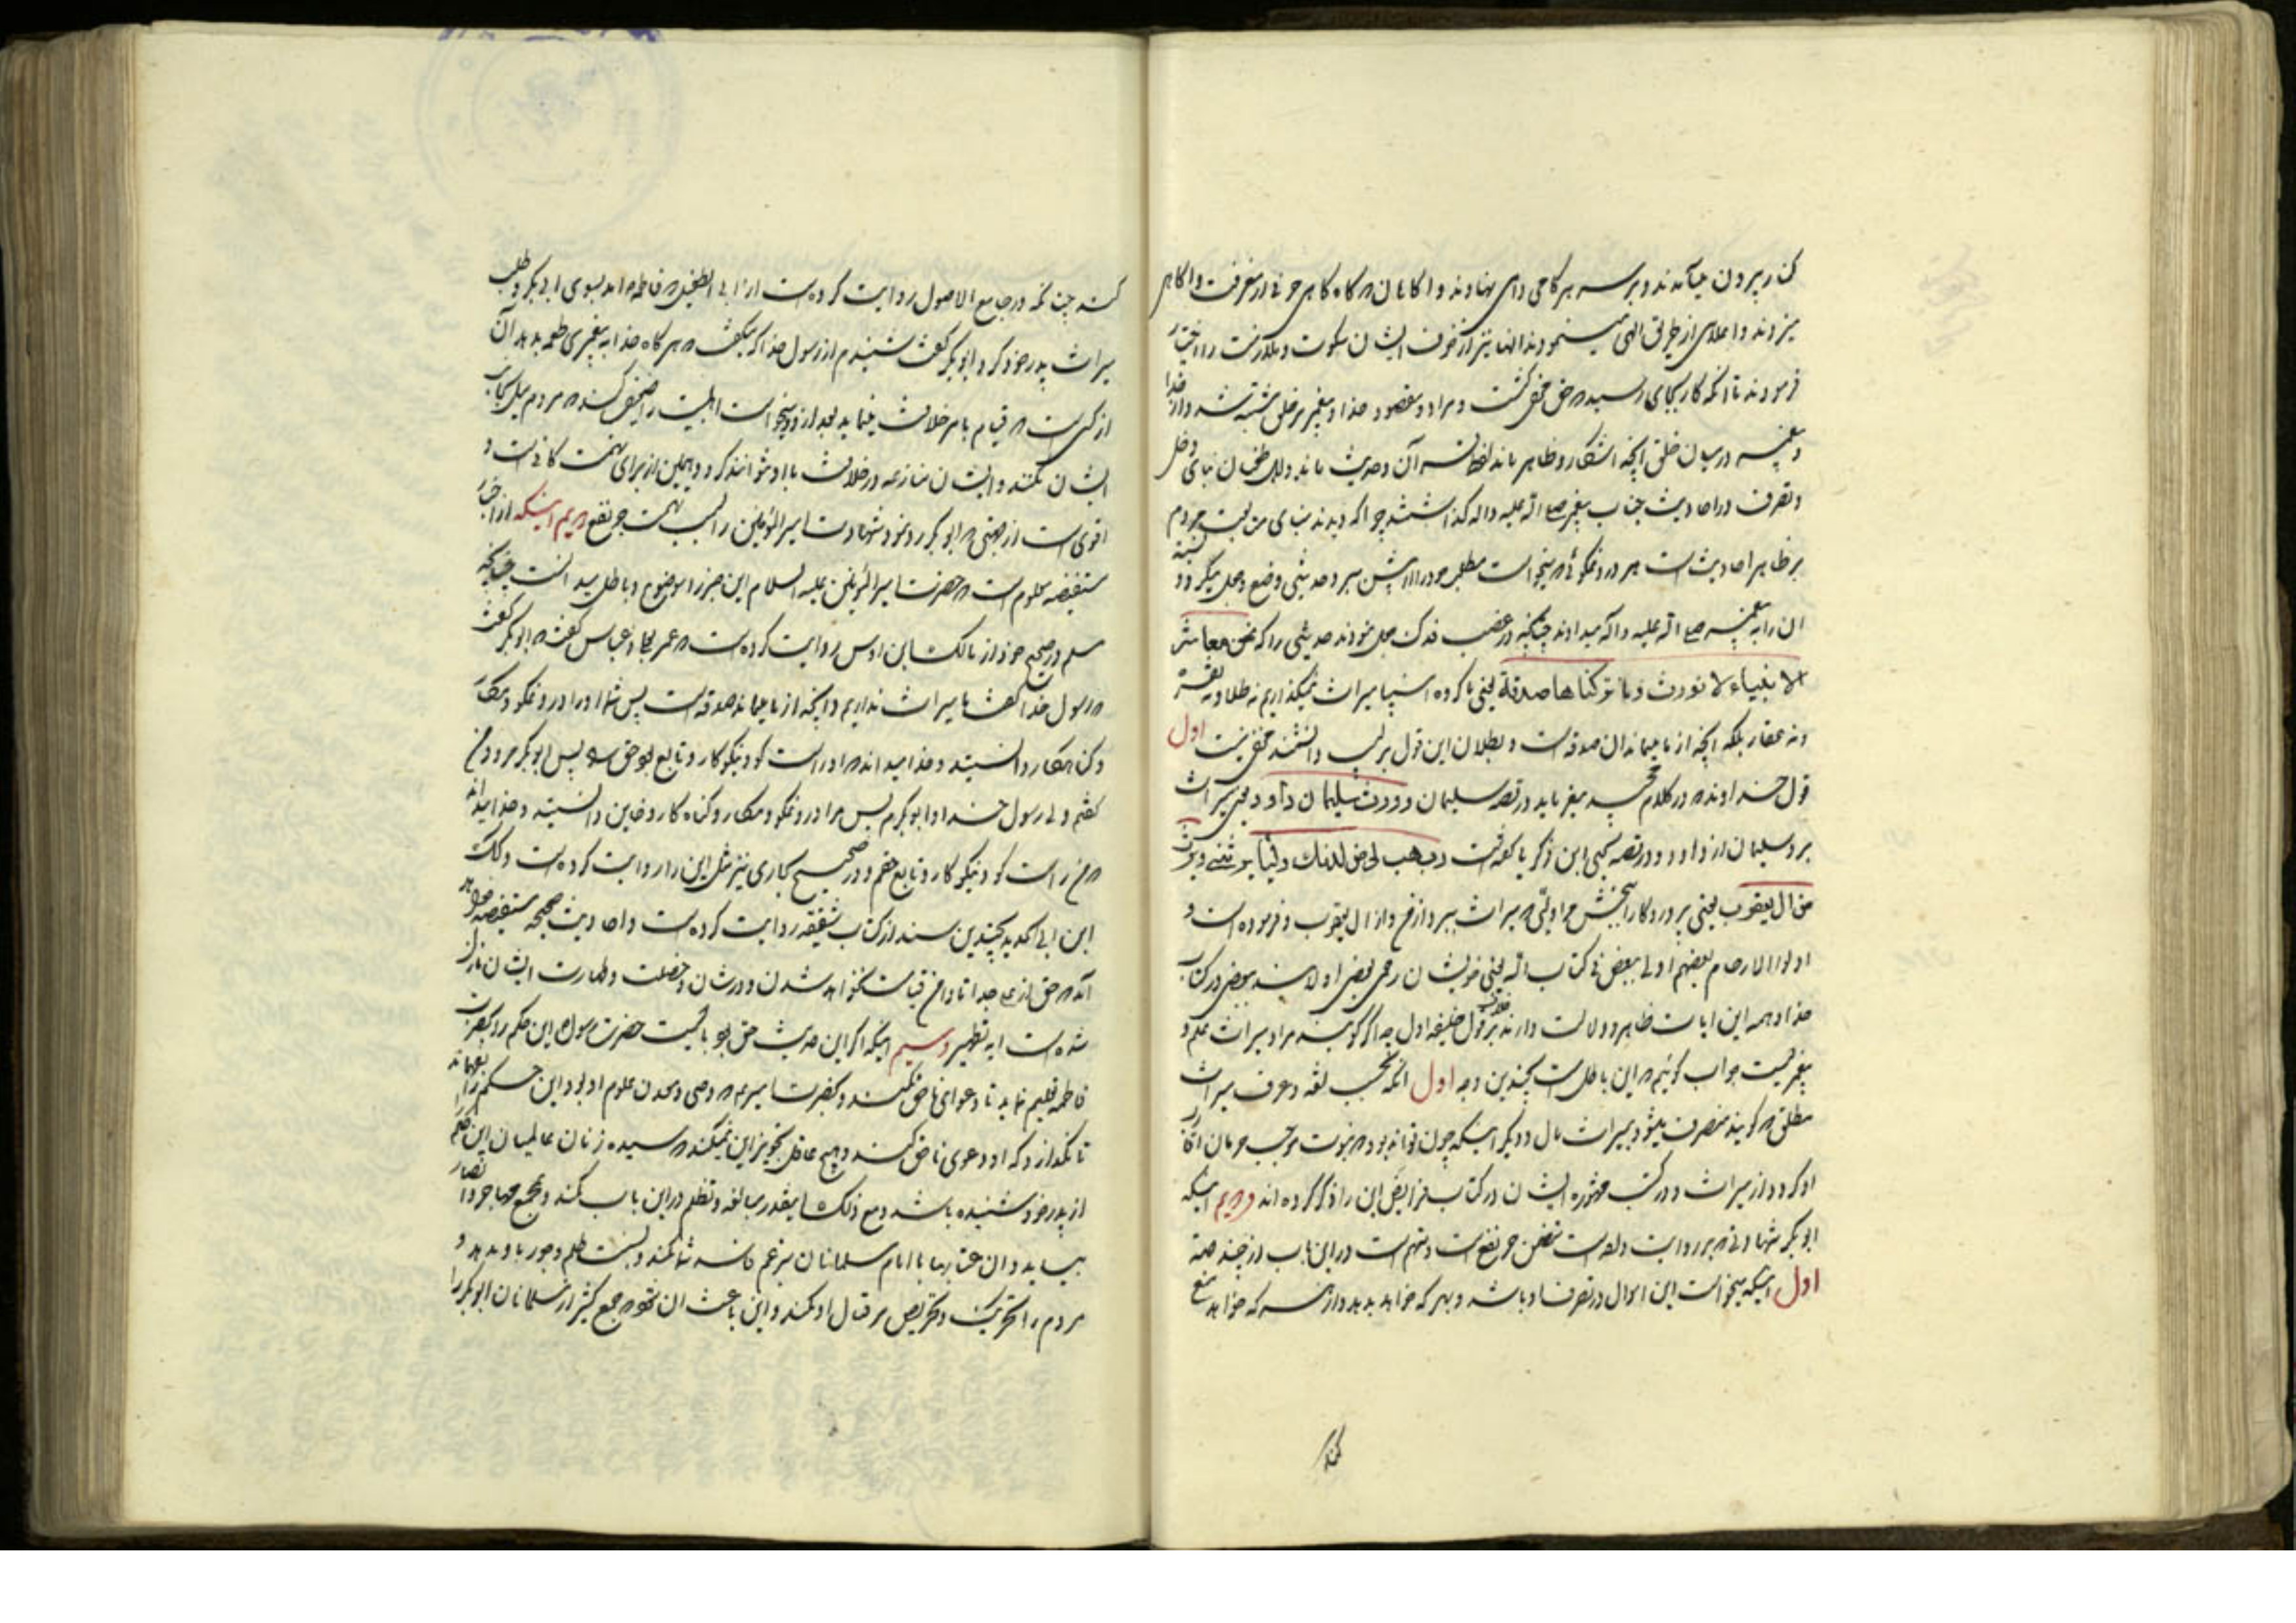 کنار بیرون میآمدند و بر سر هر کامی دامی نهادند و اکاهان که کاه کاهی حرفی از معرفت و اکاهی
میزدند و اعلای از طریق الهی مینمودند انها نیز از خوف ایشان سکوت و را اختیار
فرمودند تا انکه کار بجای رسید که حق مخفی کشت و مراد و مقصود خدا و پیغمبر بر خلق مشتبه شد و از خدا
و پیغمبر در میان خلق آنچه اشکار و ظاهر ماند لفظ قرآن و حدیث ماند و بنای دخل
و تصرف در احادیث جناب پیغمبر صلی الله علیه و اله کذاشتند چرا که دیدند بنای مردم
بر ظاهر احادیث است هر دروغکوئی که میخواست مطلب خود را از پیش ببرد حدیثی وضع و جعل میکرد و نسبة
ان را به پیغمبر صلی الله علیه و اله میدادند چنانچه در غصب فدک جعل نمودند حدیثی را که نحن معاشر
الانبیاء لا نورث و ما ترکناها صدقة یعنی ما کروه انبیا میراث نمیکذاریم نه طلا و نه نقره
و نه عقار بلکه آنچه از ما میماند ان صدقه است و بطلان این قول بر لبیب دانشمند مخفی نیست اول
قول خداوند که در کلام مجید میفرماید در قصه سلیمان و ورث سلیمان داود یعنی میراث
برد سلیمان از داود و در قصه یحیی ابن زکریا کفته است رب هب لی من لدنک ولیا یرثنی و یرث
من ال یعقوب یعنی پروردکارا ببخش مرا ولیّی که میراث ببرد از من و از ال یعقوب و فرموده است و
اولوا الارحام بعضهم اولی ببعض فی کتاب الله یعنی خویشان رحمی بعضی اولایند ببعضی در کتاب
خدا و همه این ایات ظاهر و دلالت دارند بر خلاف قول خلیفه اول چه اکر کویند مراد میراث علم و
پیغمبریست جواب کوئیم که این باطل است بچندین وجه اول انکه بحسب لغه و عرف میراث
مطلق که کویند منصرف میشود بمیراث مال و دیکر اینکه چون تواند بود که نبوت موجب حرمان اقارب
او کردد از میراث و در کتب مشهوره ایشان در کتاب فرایض این را ذکر کرده اند دویم اینکه
ابوبکر شهادتی که بر روایت داده است متضمن جر نفع است و متهم است در این باب از چند جهة
اول اینکه میخواست این اموال در تصرف او باشد و بهر که خواهد بدهد و از هر که خواهد منع
کند
کند چنانکه در جامع الاصول روایت کرده است از ابی الطفیل که فاطمه امد بسوی ابی بکر و طلب
میراث پدر خود کرد ابوبکر کفت شنیدم از رسول خدا که میکفت که هر کاه خدا به پیغمبری طعمه بدهد آن
از کسی است که قیام بامر خلافت مینماید بعد از او میخواست اهلبیت را ضعیف کند که مردم میل بجانب
ایشان نکنند و ایشان منازعه در خلافت با او نتوانند کرد و همین از برای تهمت کافی است و
اقوی است از جهتی که ابوبکر رد نمود شهادت امیرالمؤمنین را بسبب تهمت جر نفع دویم اینکه از اخبار
مستفیضه معلوم است که حضرت امیرالمؤمنین علیه السلام این خبر را موضوع و باطل میدانست چنانچه
مسلم در صحیح خود از مالک ابن اوس روایت کرده است که عمر بعلی و عباس کفت که ابوبکر کفت
که رسول خدا کفت ما میراث نداریم و آنچه از ما میماند صدقه است پس شما او را دروغکو و مکار
و کناهکار دانستید و خدا میداند که او راست کو و نیکوکار و تابع حق بود پس ابوبکر مرد و من
کفتم ولی رسول خدا و ابوبکرم پس مرا دروغکو و مکار و کناه کار و خاین دانستید و خدا میداند
که من راست کو و نیکوکار و تابع حقم و در صحیح بخاری نیز مثل این را روایت کرده است و لکن
ابن ابی الحدید بچندین سند از کتاب سقیفه روایت کرده است و احادیث صحیحه مستفیضه
آمد که حق از علی جدا تا دامن قیامت نخواهد شدن و در شان و خصلت و طهارت ایشان نازل
شده است ایه تطهیر سیم اینکه اکر این حدیث حق بود بایست حضرت رسول این حکم را بحضرت
فاطمه تعلیم نماید تا دعوای ناحق نکند و بحضرت امیر که وصی و معدن علوم او بود این حکم را بفهماند
تا نکذارد که او دعوی ناحق کند و هیچ عاقل تجویز این نمیکند که سیده زنان عالمیان این حکم
از پدر خود شنیده باشد و مع ذلک اینقدر مبالغه و تظلم در این باب کند و بمجمع مهاجر و انصار
بیاید و ان عتابها با امام مسلمانان بزعم کند و نسبت ظلم و جور باو بدهد و
مردم را تحریک و تحریص بر قتال او کند و این باعث ان شود که جمع کثیر از مسلمانان ابوبکر را